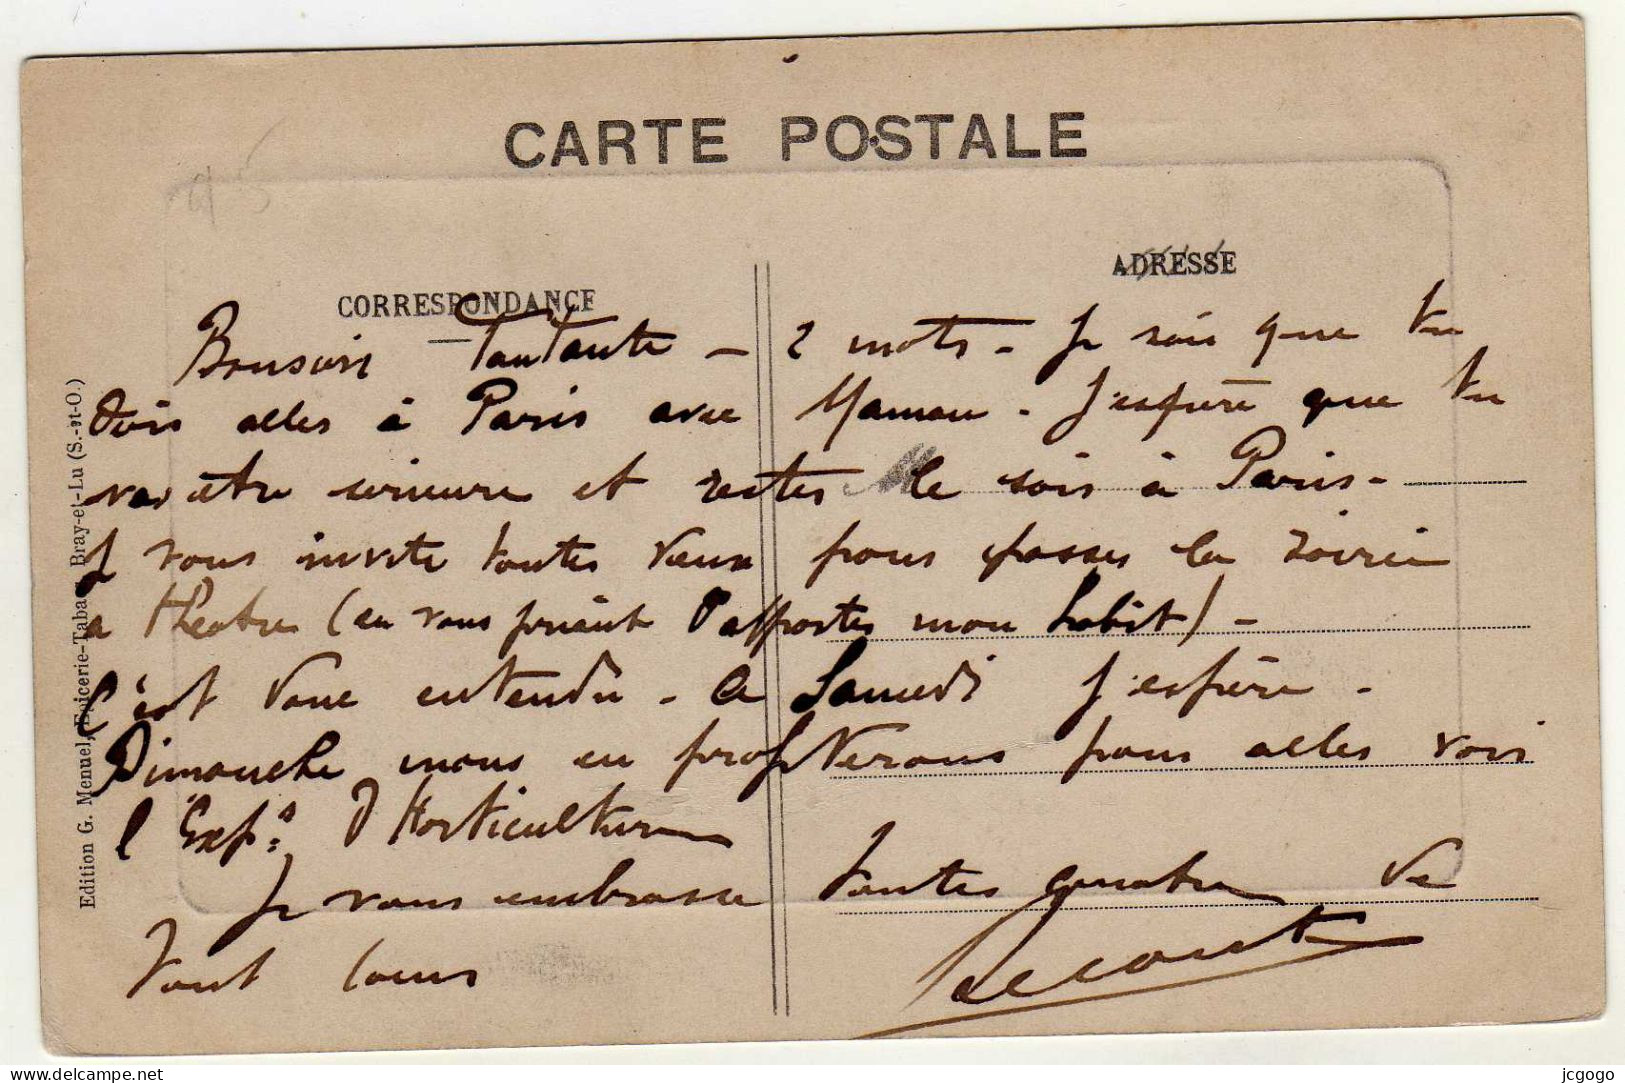 CARTE POSTALE
CORRESPONDANCE
ADRESSE
Bonsoir Tantante - 2 mots - Je sais que tu
dois aller à Paris avec Maman - J'espère que tu
vas être sérieuse et rester le soir à Paris -
Je vous invite toutes deux pour passer la soirée
a théatre (en vous priant d'apporter mon habit) -
C'est donc entendu - a Samedi j'espère -
Dimanche nous en profiterons pour aller voir
l'Expn d'Horticulture
Je vous embrasse toutes quatre de
tout cœur
Edition G. Menuel, Epicerie-Tabac Bray-et-Lu (S.-et-O.)
jcgogo
delcampe.net